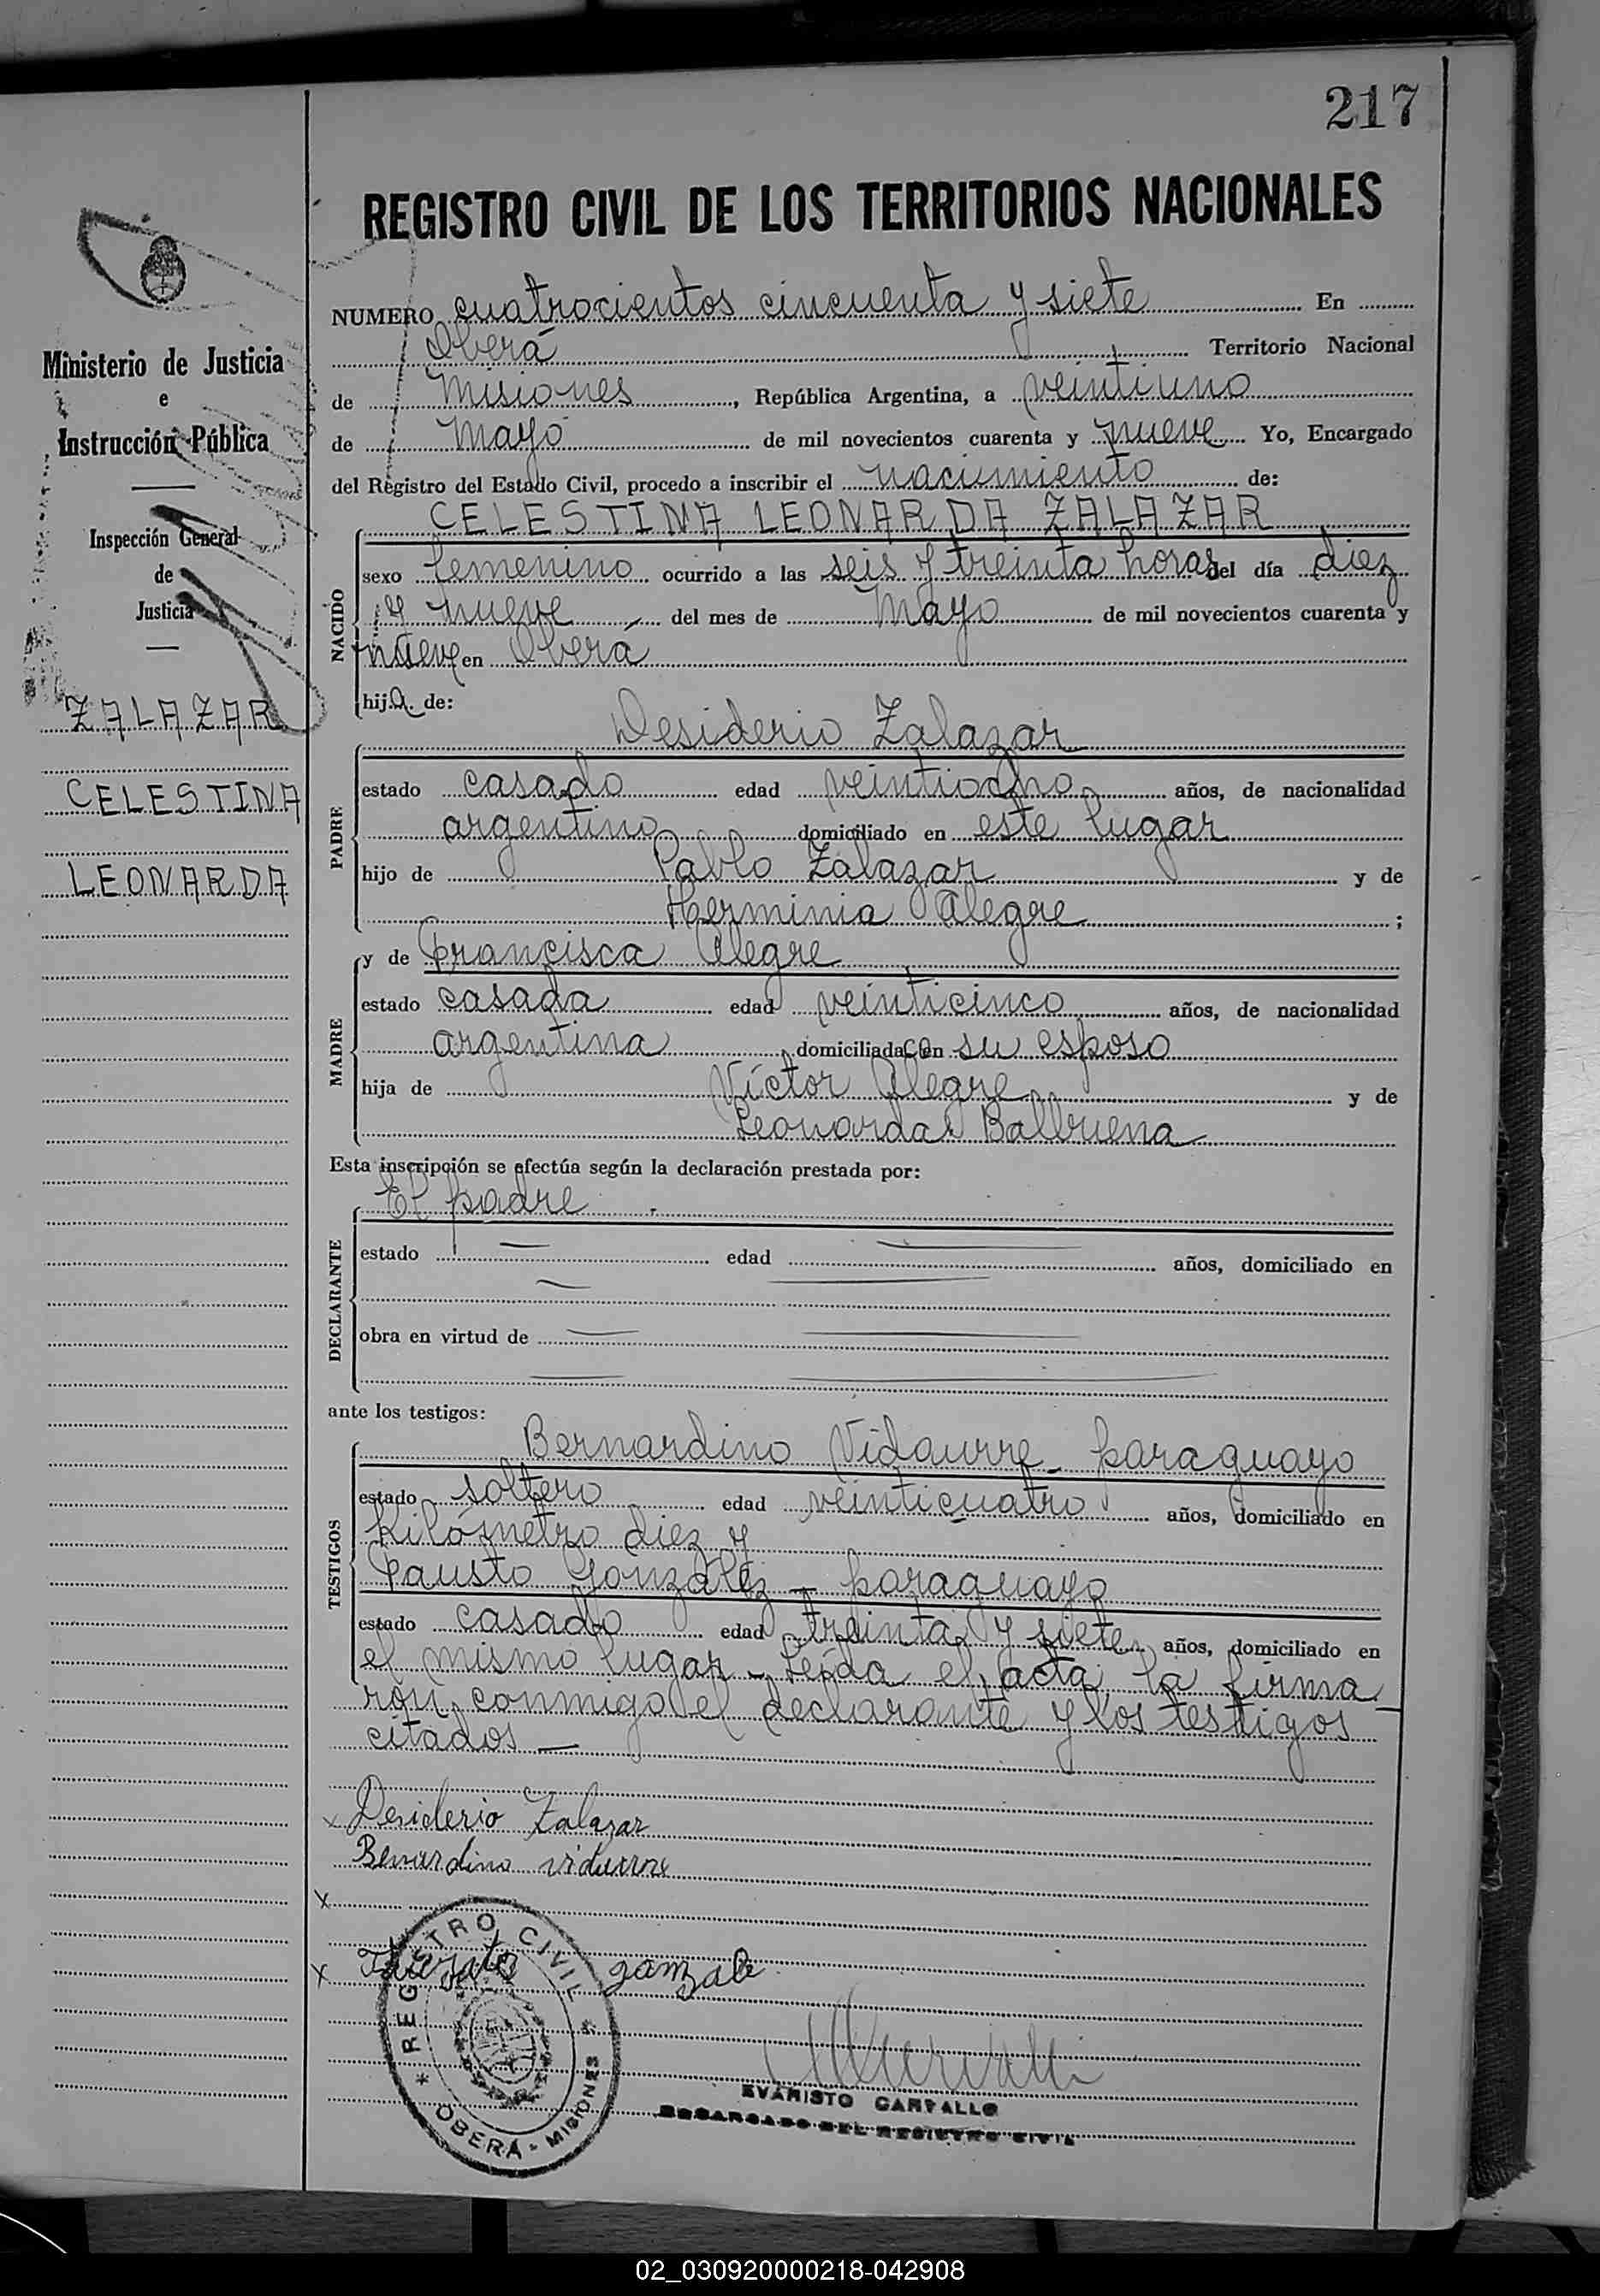 217
REGISTRO CIVIL DE LOS TERRITORIOS NACIONALES
Ministerio de Justicia
e
Instrucción Pública
Inspección General
de
Justicia
ZALAZAR
CELESTINA
LEONARDA
NUMERO cuatrocientos cincuenta y siete En
Oberá Territorio Nacional
de Misiones, República Argentina, a veintiuno
de Mayo de mil novecientos cuarenta y nueve Yo, Encargado
del Registro del Estado Civil, procedo a inscribir el nacimiento de:
CELESTINA LEONARDA ZALAZAR
NACIDO
sexo femenino ocurrido a las seis y treinta horas del día diez
y nueve del mes de Mayo de mil novecientos cuarenta y
nueve en Oberá
hija de:
Desiderio Zalazar
PADRE
estado casado edad veintiocho años, de nacionalidad
argentino domiciliado en este lugar
hijo de Pablo Zalazar y de
Herminia Alegre ;
y de Francisca Alegre
MADRE
estado casada edad veinticinco años, de nacionalidad
argentina domiciliada con su esposo
hija de Víctor Alegre y de
Leonarda Balbuena
Esta inscripción se efectúa según la declaración prestada por:
El padre
DECLARANTE
estado edad años, domiciliado en
obra en virtud de
ante los testigos:
Bernardino Vidaurre - paraguayo
TESTIGOS
estado soltero edad veinticuatro años, domiciliado en
Kilómetro diez y
Fausto González - paraguayo
estado casado edad treinta y siete años, domiciliado en
el mismo lugar - Leída el acta, la firma
ron conmigo el declarante y los testigos
citados
x Desiderio Zalazar
Bernardino vidaurre
x
x gonzale
REGISTRO CIVIL
OBERÁ - MISIONES
EVARISTO CARVALLO
ENCARGADO DEL REGISTRO CIVIL
02_030920000218-042908